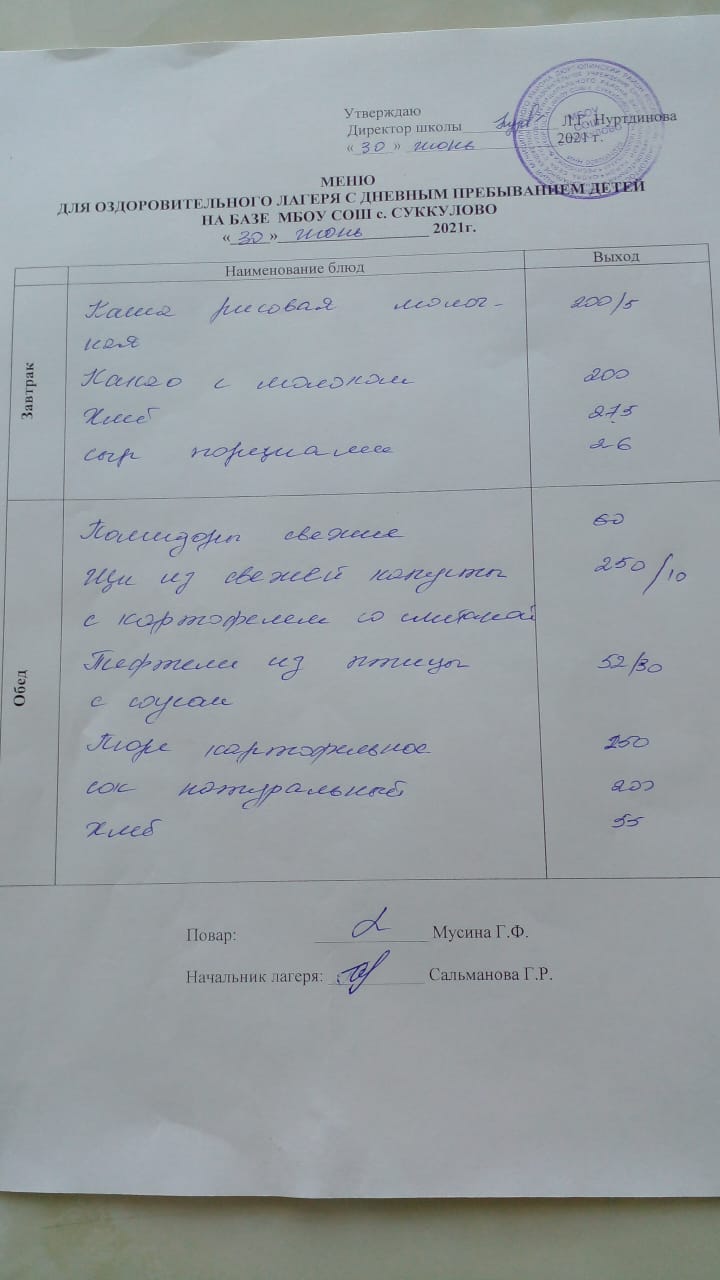 Утверждаю
Директор школы Л.Г. Нуртдинова
«30» июнь 2021 г.
МБОУ
СОШ
МЕНЮ
ДЛЯ ОЗДОРОВИТЕЛЬНОГО ЛАГЕРЯ С ДНЕВНЫМ ПРЕБЫВАНИЕМ ДЕТЕЙ
НА БАЗЕ МБОУ СОШ с. СУККУЛОВО
«30» июнь 2021г.
Наименование блюд Выход
Завтрак
Каша рисовая молоч- 200/5
ная
Какао с молоком 200
Хлеб 27,5
сыр порциями 26
Обед
Помидоры свежие 60
Щи из свежей капусты 250/10
с картофелем со сметаной
Тефтели из птицы 52/30
с соусом
Пюре картофельное 150
сок натуральный 200
хлеб 55
Повар: Мусина Г.Ф.
Начальник лагеря: Сальманова Г.Р.